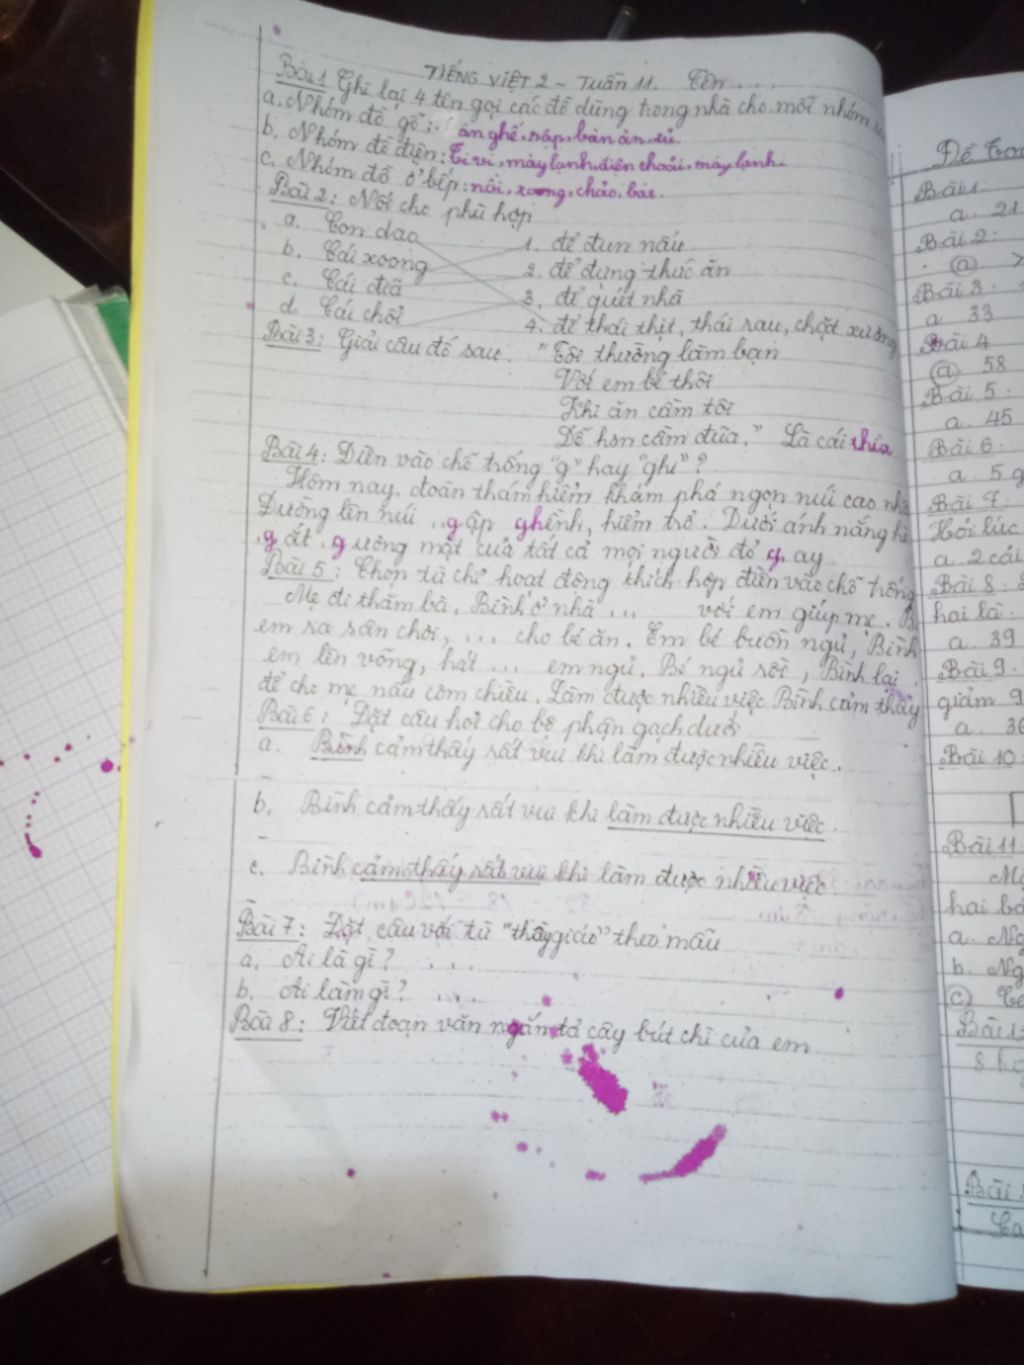 TIẾNG VIỆT 2 - TUẦN 11. Tên ...
Bài 1 Ghi lại 4 tên gọi các đồ dùng trong nhà cho mỗi nhóm
a. Nhóm đồ gỗ: ghế, sáp, bàn ăn, tủ.
b. Nhóm đồ điện: Ti vi, máy lạnh, điện thoải, máy lạnh.
c. Nhóm đồ ở bếp: nồi, xoong, chảo, bát.
Bài 2: Nối cho phù hợp
a. Con dao
1. để đun nấu
b. Cái xoong
2. để đựng thức ăn
c. Cái đĩa
3. để quét nhà
d. Cái chổi
4. để thái thịt, thái rau, chặt xương
Bài 3: Giải câu đố sau. "Tôi thường làm bạn
Với em bé thôi
Khi ăn cầm tôi
Dễ hơn cầm đũa." Là cái thìa
Bài 4: Điền vào chỗ trống "g" hay "gh"?
Hôm nay, đoàn thám hiểm khám phá ngọn núi cao
Đường lên núi ..gập ghềnh, hiểm trở. Dưới ánh nắng
.g ắt .g ương mặt của tất cả mọi người đỏ g. ay
Bài 5: Chọn từ chỉ hoạt động thích hợp điền vào chỗ trống
Mẹ đi thăm bà. Bình ở nhà ... với em giúp mẹ.
em ra sân chơi, ... cho bé ăn. Em bé buồn ngủ, Bình
em lên võng, hát ... em ngủ. Bé ngủ rồi, Bình lại
để cho mẹ nấu cơm chiều. Làm được nhiều việc Bình cảm thấy
Bài 6: Đặt câu hỏi cho bộ phận gạch dưới
a. Bình cảm thấy rất vui khi làm được nhiều việc.
b. Bình cảm thấy rất vui khi làm được nhiều việc.
c. Bình cảm thấy rất vui khi làm được nhiều việc
Bài 7: Đặt câu với từ "thầy giáo" theo mẫu
a. Ai là gì? ....
b. Ai làm gì? ....
Bài 8: Viết đoạn văn ngắn tả cây bút chì của em
Đề
Bài 1.
a. 21
Bài 2:
a
Bài 3.
a 33
Bài 4
a 58
Bài 5.
a. 45
Bài 6
a. 5 g
Bài 7.
Hỏi lúc
a. 2 cái
Bài 8.
hai là
a. 39
Bài 9.
giảm 9
a.
Bài 10
Bài 11.
hai
a.
b.
c
Bài